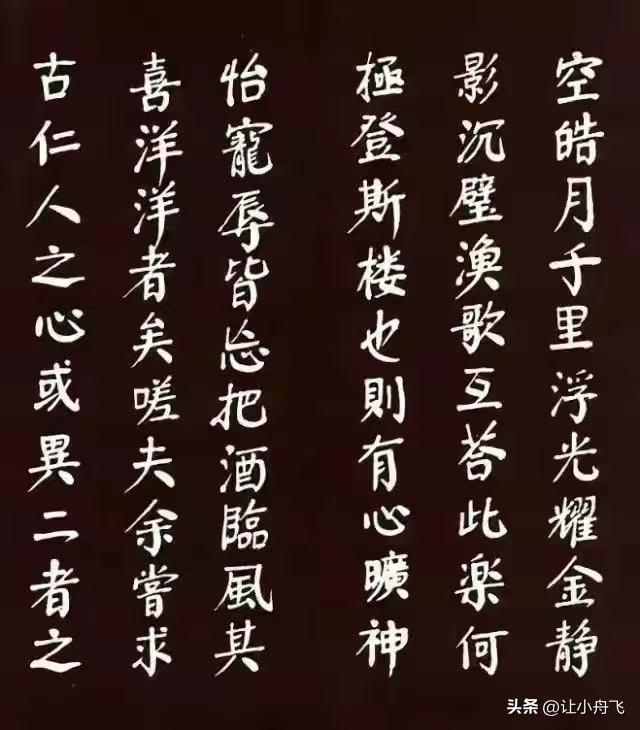 空皓月千里浮光耀金静
影沉璧渔歌互荅此楽何
極登斯楼也則有心曠神
怡寵辱皆忘把酒臨風其
喜洋洋者矣嗟夫余嘗求
古仁人之心或異二者之
头条 @让小舟飞